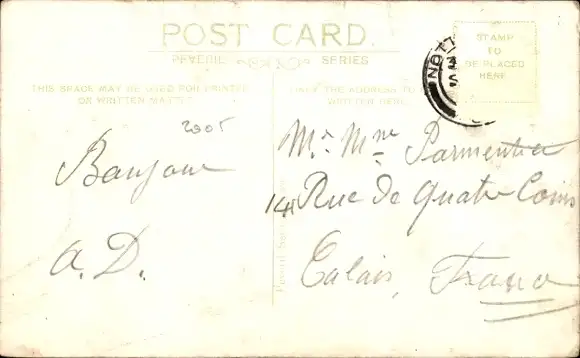 POST CARD.
PEVERIL SERIES
THIS SPACE MAY BE USED FOR PRINTED
OR WRITTEN MATTER
ONLY THE ADDRESS TO BE
WRITTEN HERE
STAMP
TO
BE PLACED
HERE
NOTT
2005
Bonjour
A. D.
Mr. Mme Parmentier
14 Rue de Quatre Coins
Calais, France